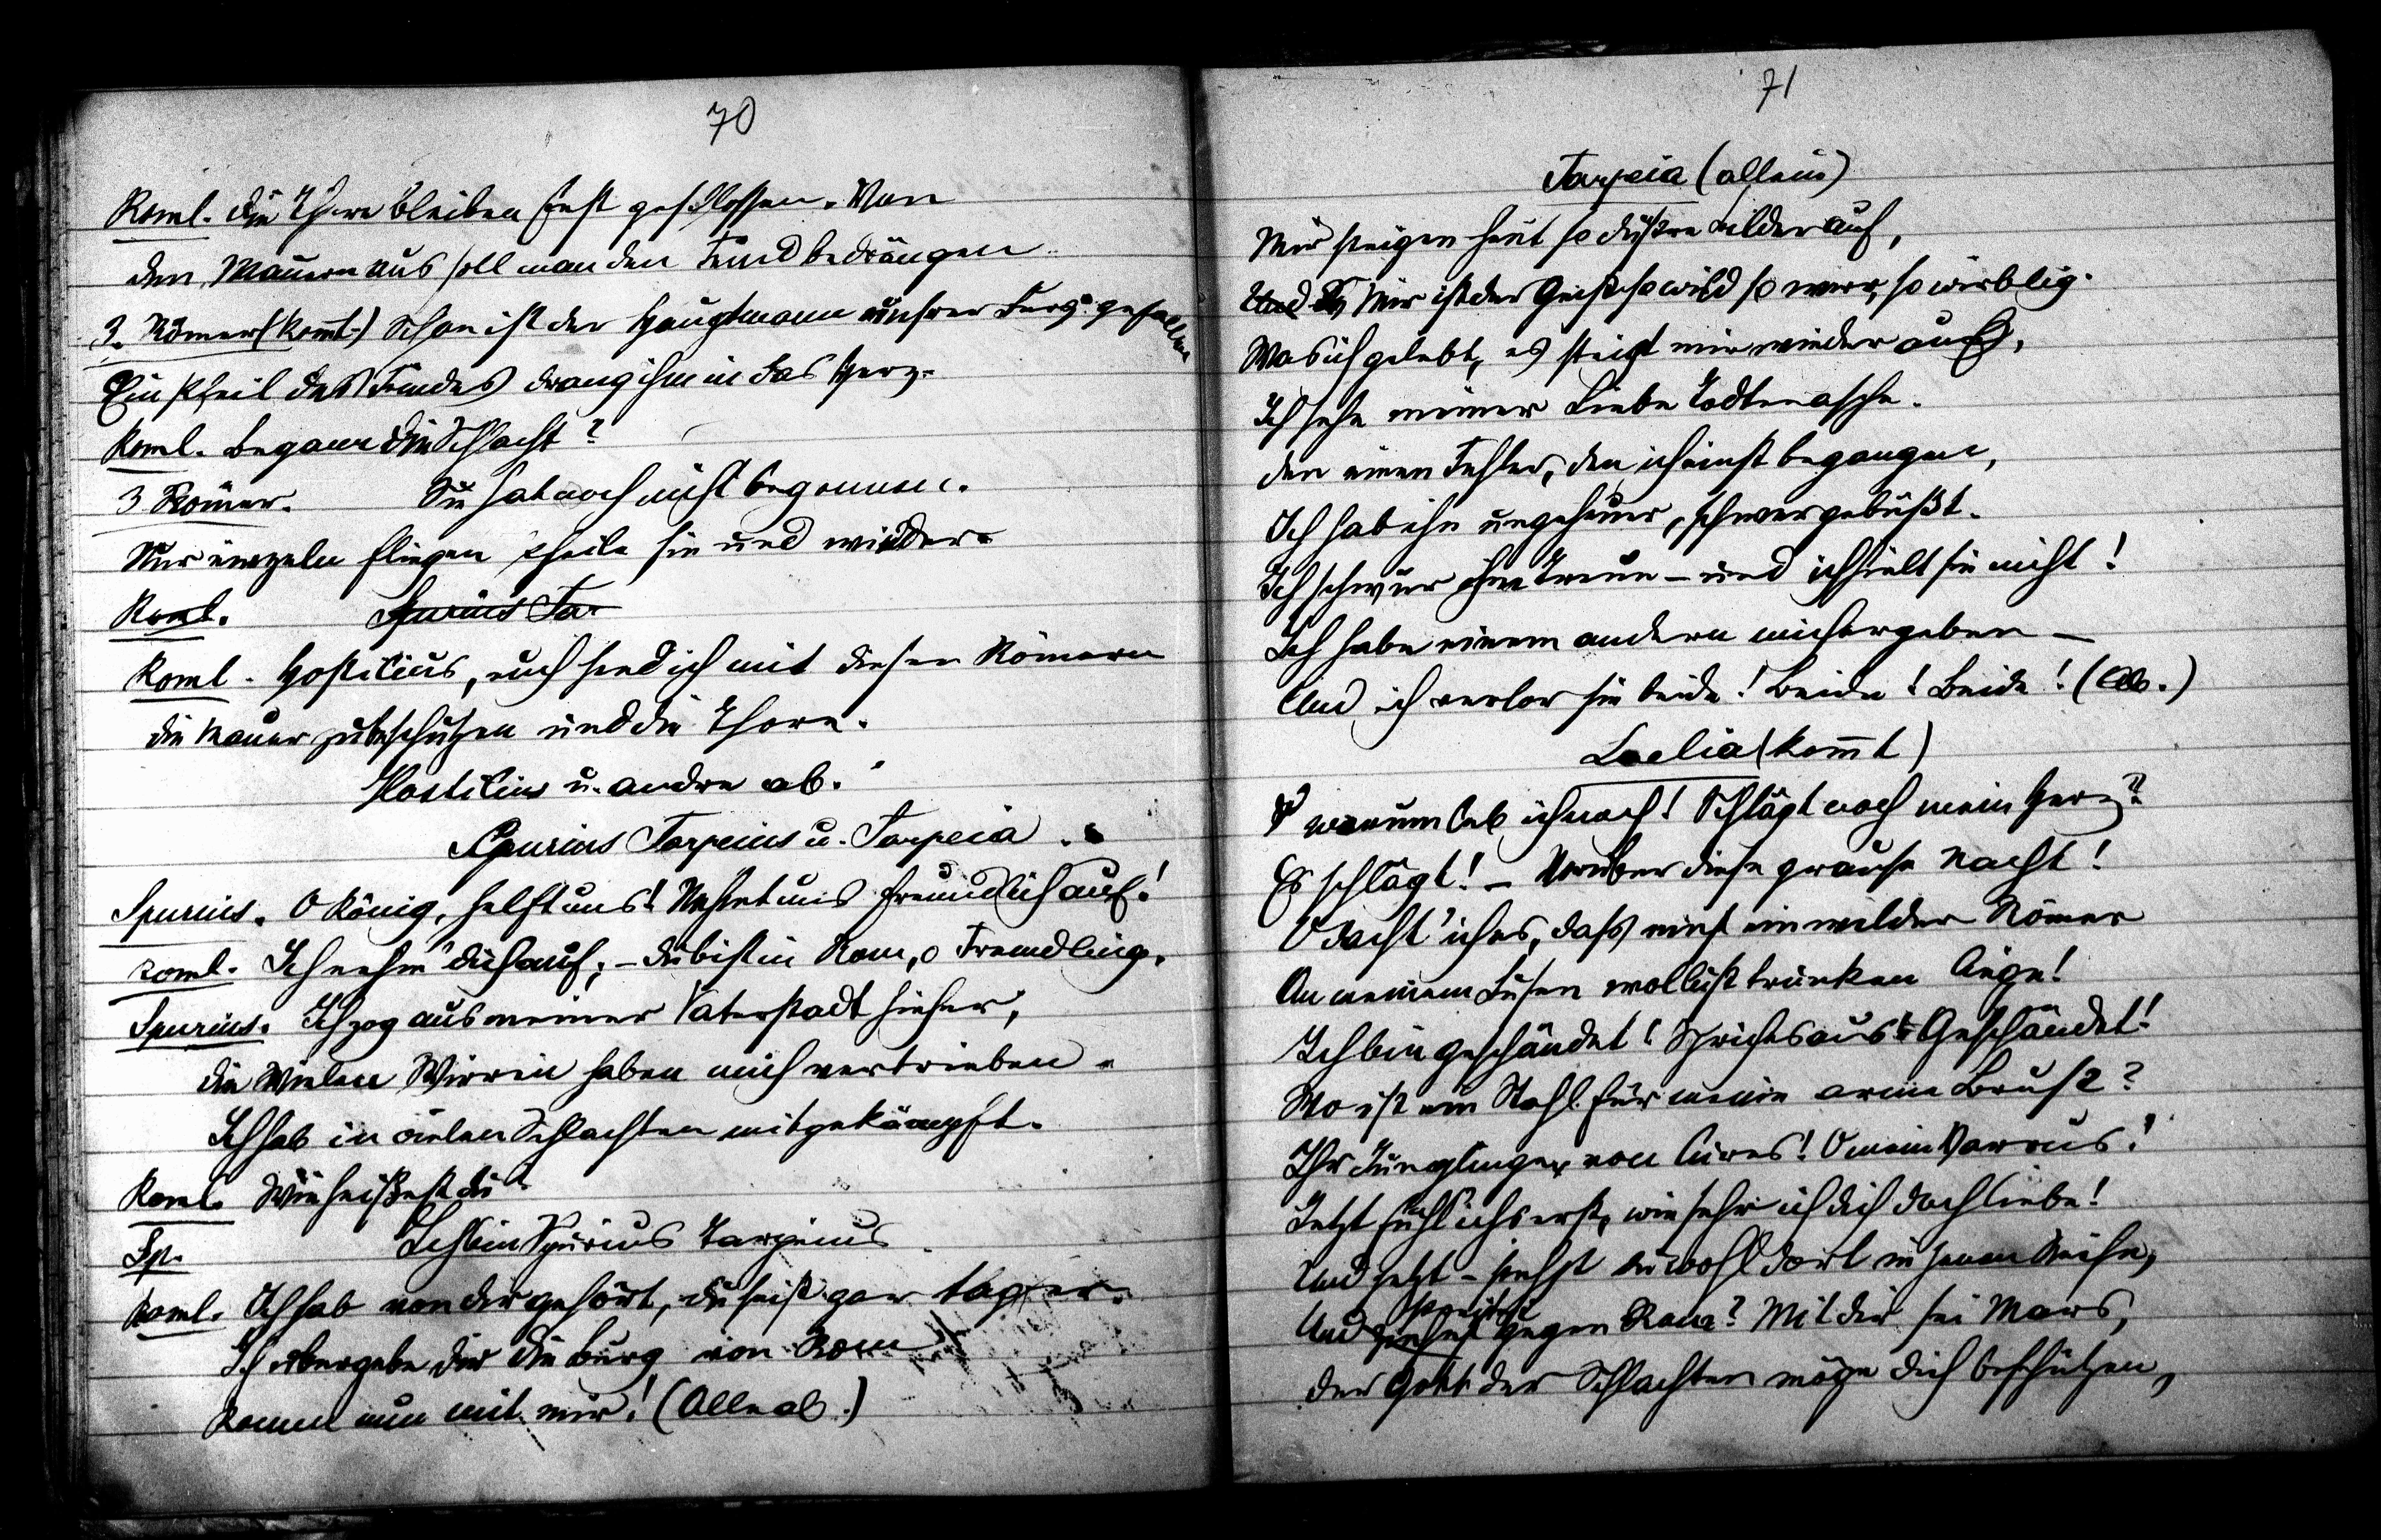 70
Roml. Die Thore bleiben fest geschlossen. Von
den Mauern aus soll man den Feind bedrängen
3. Römer (kom̅t.) Schon ist der Hauptmann unsrer Burg gefallen
Ein Pfeil des Feindes drang ihm in das Herz.
Roml. Begann die Schlacht?
3 Römer. Sie hat noch nicht begonnen.
Nur einzeln fliegen Pfeile hin und wieder.
Roml. Spurius Tar
Roml. Hostilius, euch send ich mit diesen Römern
die Mauer zu beschützen und die Thore.
Hostilius u. andre ab.
Spurius Tarpeius u. Tarpeia.
Spurius. O König, helft uns! Nehmt uns freundlich auf!
Roml. Ich nehm' dich auf; – du bist in Rom, o Fremdling.
Spurius. Ich zog aus meiner Vaterstadt hieher,
die vielen Wirren haben mich vertrieben.
Ich hab in vielen Schlachten mitgekämpft.
Roml. Wie heißest du?
Sp. Ich bin Spurius Tarpeius
Roml. Ich hab von dir gehört, du seist gar tapfer.
Ich übergebe dir die Burg von Rom
Komm nun mit mir! (Alle ab.)
71
Tarpeia (allein)
Mir steigen heut so düstre Bilder auf,
Und Es Mir ist der Geist so wild so wirr, so wirblig.
Was ich gelebt, es steigt mir wieder auf,
Ich sehe meiner Liebe Todtenasche.
Den einen Fehler, den ich einst begangen,
Ich hab ihn ungeheuer, schwer gebüßt.
Ich schwur ihm Treue – und ich hielt sie nicht!
Ich habe einem andern mich ergeben –
Und ich verlor sie beide! Beide! Beide! (Ab.)
Laelia (kom̅t)
O warum leb ich noch! Schlägt noch mein Herz?
Es schlägt! – Vorüber diese grause Nacht!
O dacht' ich es, daß einst ein wilder Römer
An meinem Busen wollusttrunken liege!
Ich bin geschändet! Sprich es aus! Geschändet!
Wo ist ein Stahl für meine arme Brust?
Ihr Jünglinge von Cures! O mein Varrus!
Jetzt fühl ich's erst, wie sehr ich dich doch liebe!
Und jetzt – stehst du wohl dort in jenen Reihn,
Und ziehest streitest gegen Rom? Mit dir sei Mars,
der Gott der Schlachten möge dich beschützen,